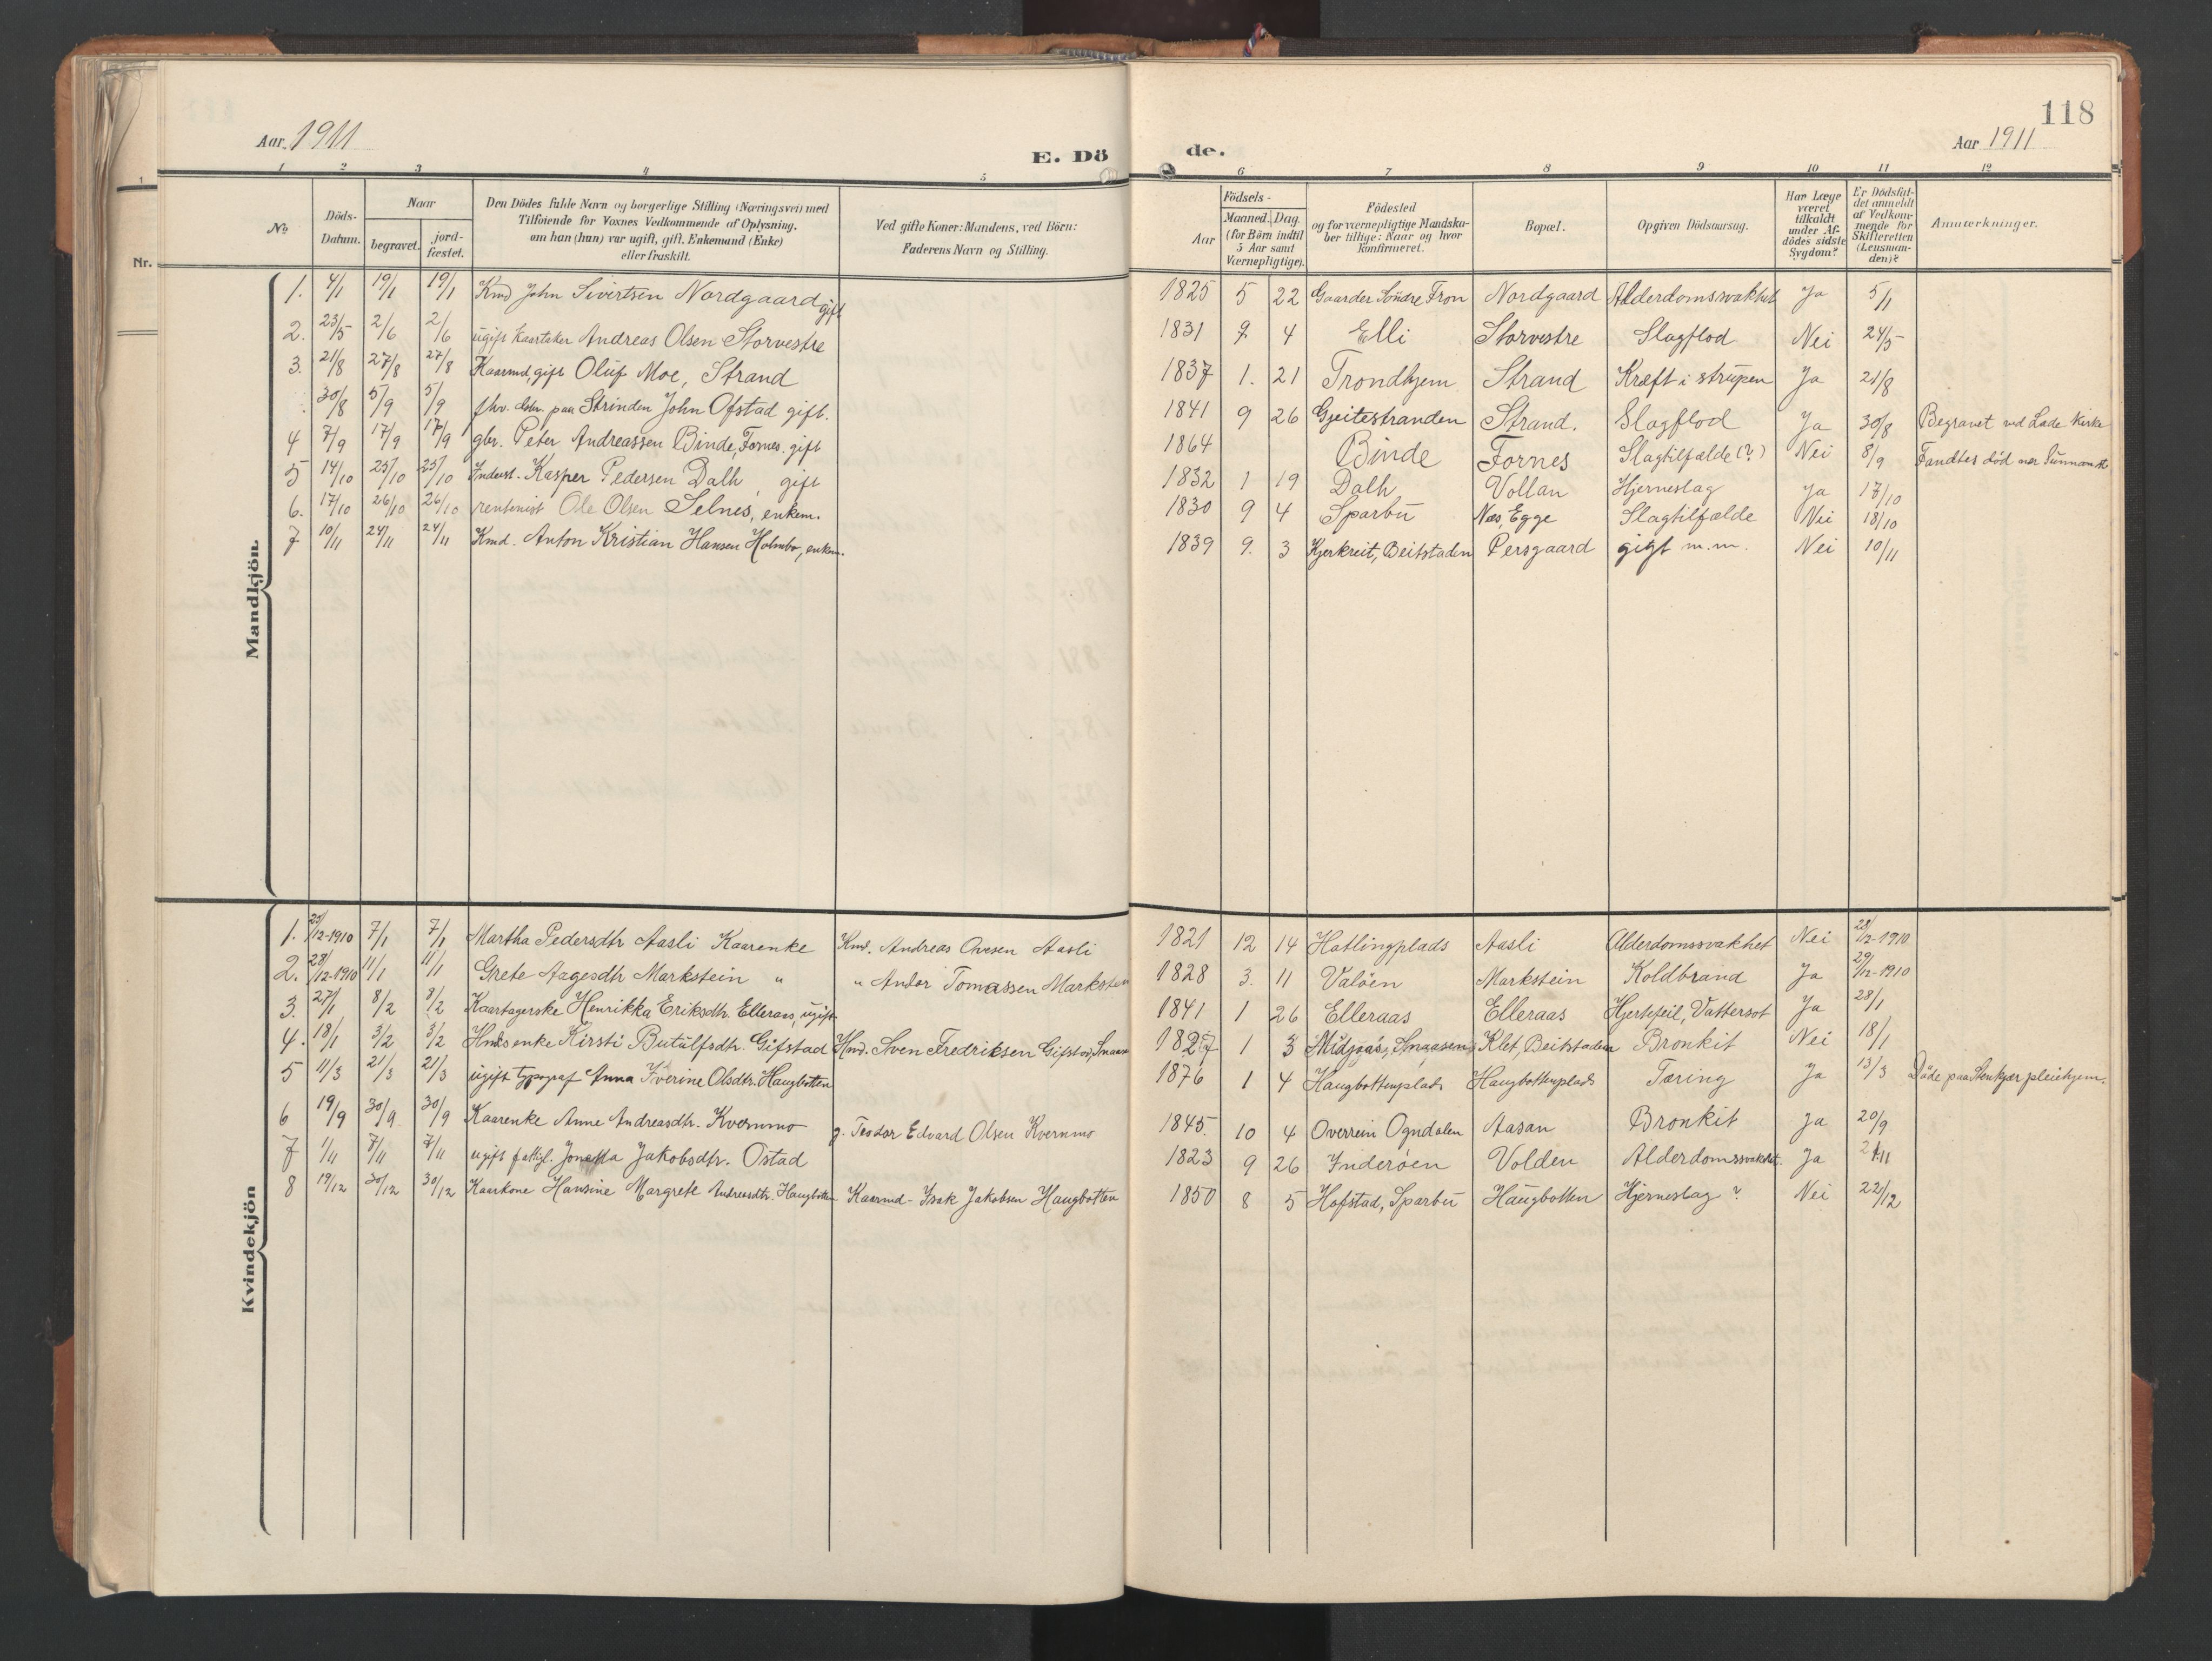 118
Aar 1911
E. Dö
de.
Aar 1911
1 2 3 4 5 6 7 8 9 10 11 12
No
Döds-Datum.
Naar
begravet.
jord-fæstet.
Den Dödes fulde Navn og borgerlige Stilling (Næringsvei) med
Tilföiende for Voxnes Vedkommende af Oplysning,
om han (hun) var ugift, gift, Enkemand (Enke)
eller fraskilt.
Ved gifte Koner: Mandens, ved Börn:
Faderens Navn og Stilling.
Födsels-
Aar
Maaned. Dag.
(for Börn indtil
5 Aar samt
Værnepligtige).
Födested
og for værnepligtige Mandska-
ber tillige: Naar og hvor
konfirmeret.
Bopæl.
Opgiven Dödsaarsag.
Har Læge
været
tilkaldt
under Af-
dödes sidste
Sygdom?
Er Dödsfal-
det anmeldt
af Vedkom-
mende for
Skifteretten
(Lensman-
den)?
Anmærkninger.
Nr.
Mandkjön
1. 4/1 19/1 19/1 Kmd John Sivertsen Nordgaard gift 1825 5 22 Gaarder Söndre Fron Nordgaard Alderdomssvakhet Ja 5/1
2. 23/5 2/6 2/6 ugift Kaartaker Andreas Olsen Storvestre 1831 9 4 Elli Storvestre Slagflod Nei 24/5
3. 21/8 27/8 27/8 Kaarmd, gift Oluf Moe, Strand 1837 1. 21 Trondhjem Strand Kræft i strupen Ja 21/8
30/8 5/9 5/9 fhv. paa Strinden John Ofstad gift. 1841 9 26 Gjeitestranden Strand. Slagflod Ja 30/8 Begravet ved Lade Kirke
4 7/9 17/9 17/9 gbr. Peter Andreassen Binde, Fornes. gift 1864 Binde Fornes Slagtilfælde (?) Nei 8/9 Fandtes död nær Sunnan st
5 14/10 25/10 25/10 Inderst. Kasper Pedersen Dalh, gift 1832 1 19 Dalh Vollan Hjerneslag Ja 17/10
6. 17/10 26/10 26/10 rentenist Ole Olsen Selnes, enkem. 1830 9 4 Sparbu Næs, Egge Slagtilfælde Nei 18/10
7 10/11 24/11 24/11 Kmd. Anton Kristian Hansen Holmbo, enkm. 1839 9. 3 Kjerkreit, Beitstaden Persgaard gigt m.m. Nei 10/11
Kvindekjön
1. 25/12-1910 7/1 7/1 Martha Pedersdtr Aasli Kaarenke Kmd. Andreas Ovesen Aasli 1821 12 14 Hatlingplads Aasli Alderdomssvakhet Nei 28/12-1910
2. 28/12-1910 11/1 11/1 Grete Aagesdtr Markstein " " Andor Tomassen Markstein 1828 3. 11 Valöen Markstein Koldbrand Ja 29/12-1910
3. 27/1 8/2 8/2 Kaartagerske Henrikka Eriksdtr. Elleraas, ugift 1841 1 26 Elleraas Elleraas Hjertfeil, Vattersot Ja 28/1
4. 18/1 3/2 3/2 Hmdsenke Kirsti Butulfsdtr. Gifstad Hmd. Sven Fredriksen Gifstad, Snaasen 1827 1 3 Midjaas, Snaasen Klet, Beitstaden Bronkit Nei 18/1
5 11/3 21/3 21/3 ugift typograf Anna Iverine Olsdtr. Haugbotten 1876 1 4 Haugbottenplads Haugbottenplads Tæring Ja 13/3 Döde paa Stenkjær pleiehjem.
6 19/9 30/9 30/9 Kaarenke Anne Andreasdtr. Kvernmo g. Teodor Edvard Olsen Kvernmo 1845. 10 4 Overrein Ogndalen Aasan Bronkit Ja 20/9
7 1/11 7/11 7/11 ugift fattigl. Jonetta Jakobsdtr. Ostad 1823 9 26 Inderöen Volden Alderdomssvakhet. Ja 2/11
8 19/12 30/12 30/12 Kaarkone Hansine Margrete Andreasdtr. Haugbotten Kaarmd - Isak Jakobsen Haugbotten 1850 8 5 Hofstad, Sparbu Haugbotten Hjerneslag ? Nei 22/12